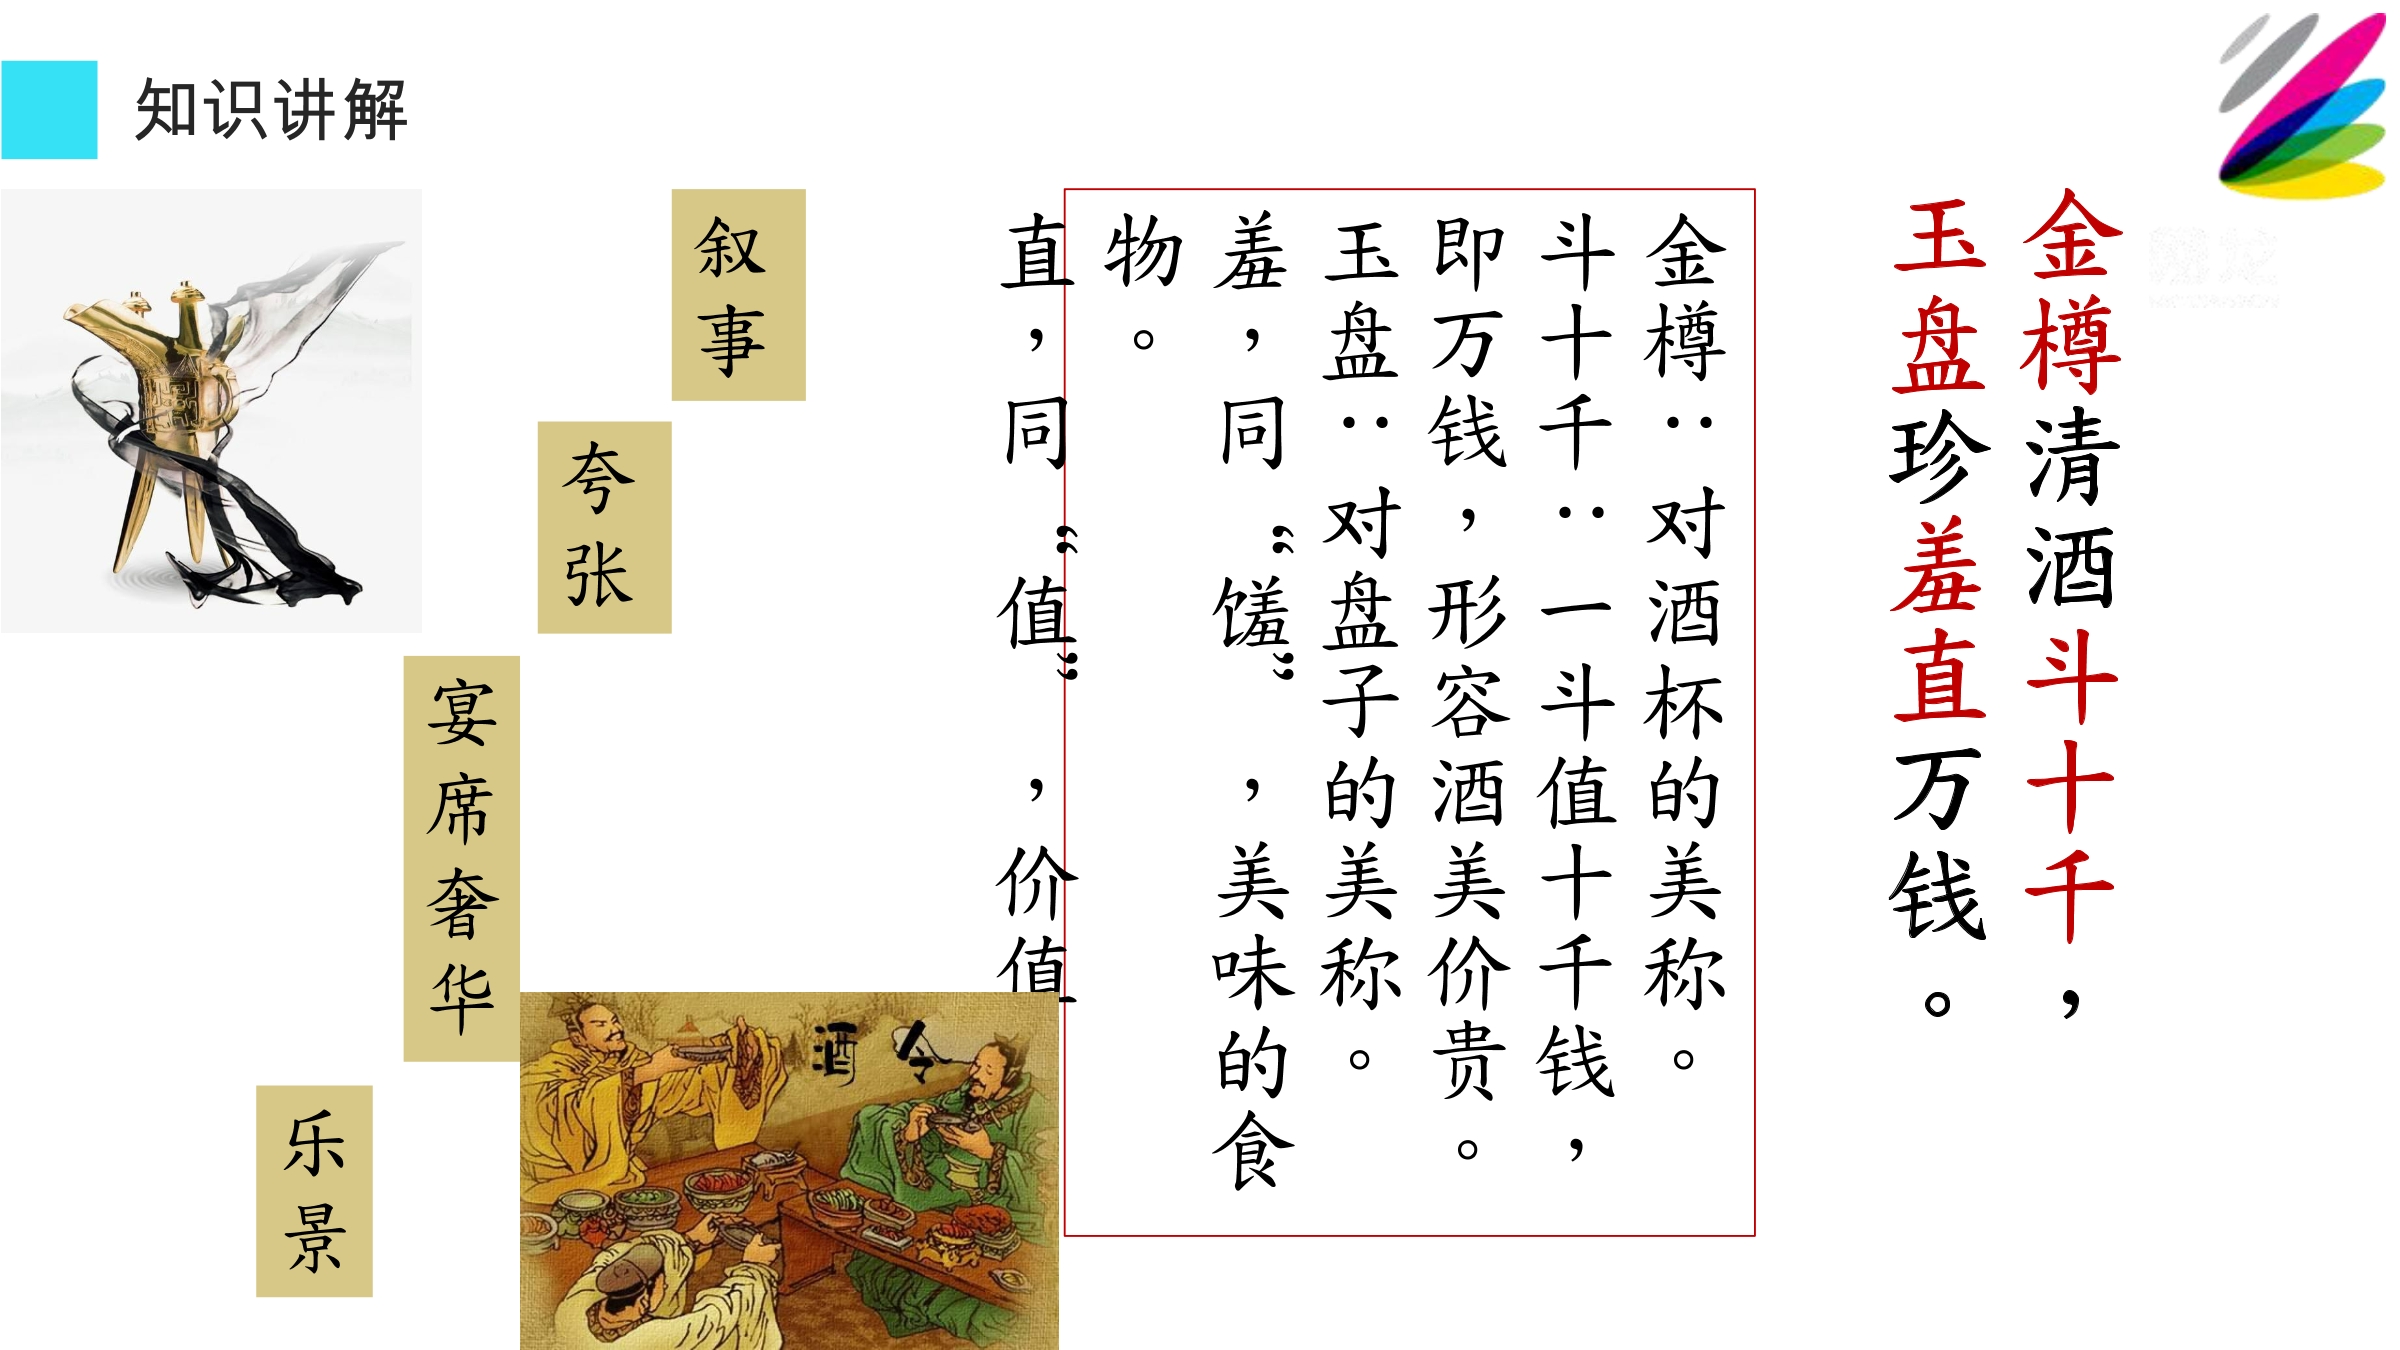 知识讲解
金樽清酒斗十千，
玉盘珍羞直万钱。
金樽：对酒杯的美称。
斗十千：一斗值十千钱，
即万钱，形容酒美价贵。
玉盘：对盘子的美称。
羞，同“馐”，美味的食
物。
直，同“值”，价值
叙事
夸张
宴席奢华
乐景
酒令